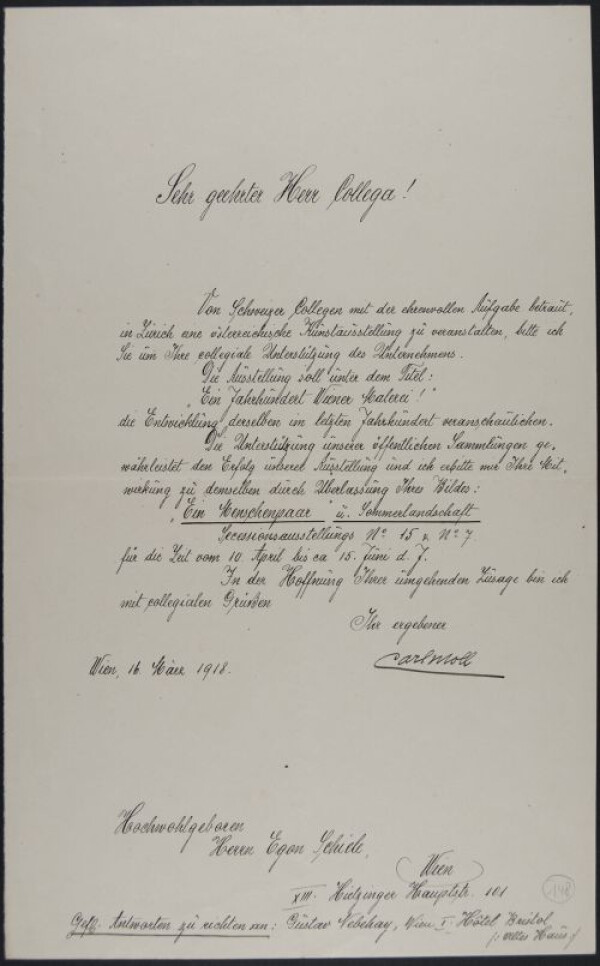 Sehr geehrter Herr Collega!
Von Schweizer Collegen mit der ehrenvollen Aufgabe betraut,
in Zürich eine österreichische Kunstausstellung zu veranstalten, bitte ich
Sie um Ihre collegiale Unterstützung des Unternehmens.
Die Ausstellung soll unter dem Titel:
„Ein Jahrhundert Wiener Malerei!"
die Entwicklung derselben im letzten Jahrhundert veranschaulichen.
Die Unterstützung unserer öffentlichen Sammlungen ge-
währleistet den Erfolg unserer Ausstellung und ich erbitte mir Ihre Mit-
wirkung zu demselben durch Überlassung Ihres Bildes:
„Ein Menschenpaar" u. Sommerlandschaft
Secessionsausstellungs No. 15 u. No 7
für die Zeit vom 10. April bis ca 15. Juni d. J.
In der Hoffnung Ihrer umgehenden Zusage bin ich
mit collegialen Grüßen
Ihr ergebener
Carl Moll
Wien, 16. März 1918.
Hochwohlgeboren
Herrn Egon Schiele,
Wien
XIII. Hietzinger Hauptstr. 101
148
Gefl. Antworten zu richten an: Gustav Nebehay, Wien I. Hôtel Bristol
/: altes Haus :/